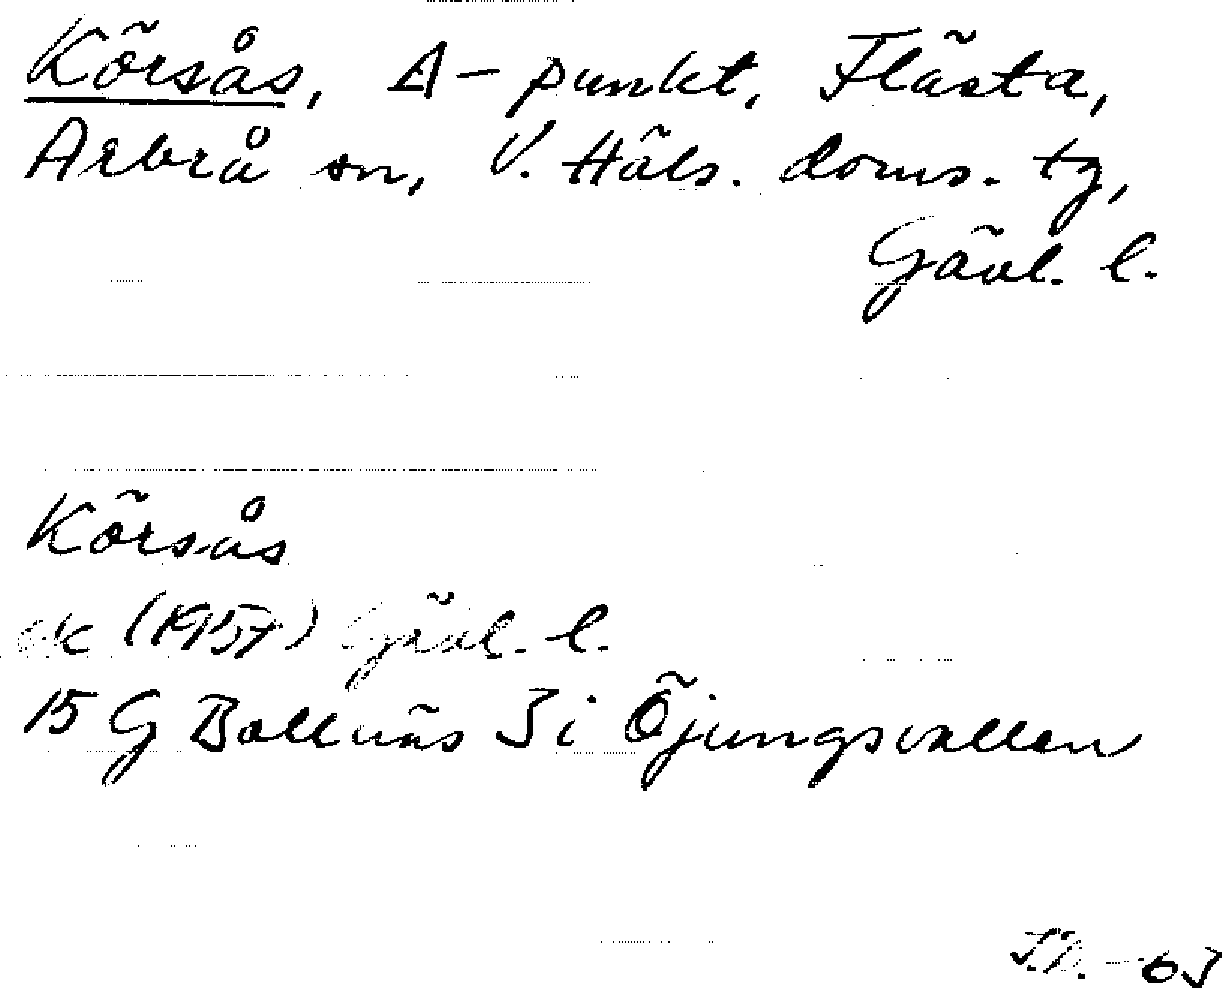 Körsås, A-punkt, Flästa,
Arbrå sn, V. Häls. doms. tg,
Gävl. l.
Körsås
ek (1957) Gävl. l.
15 G Bollnäs 3 i Öjungsvallen
S.D. -63